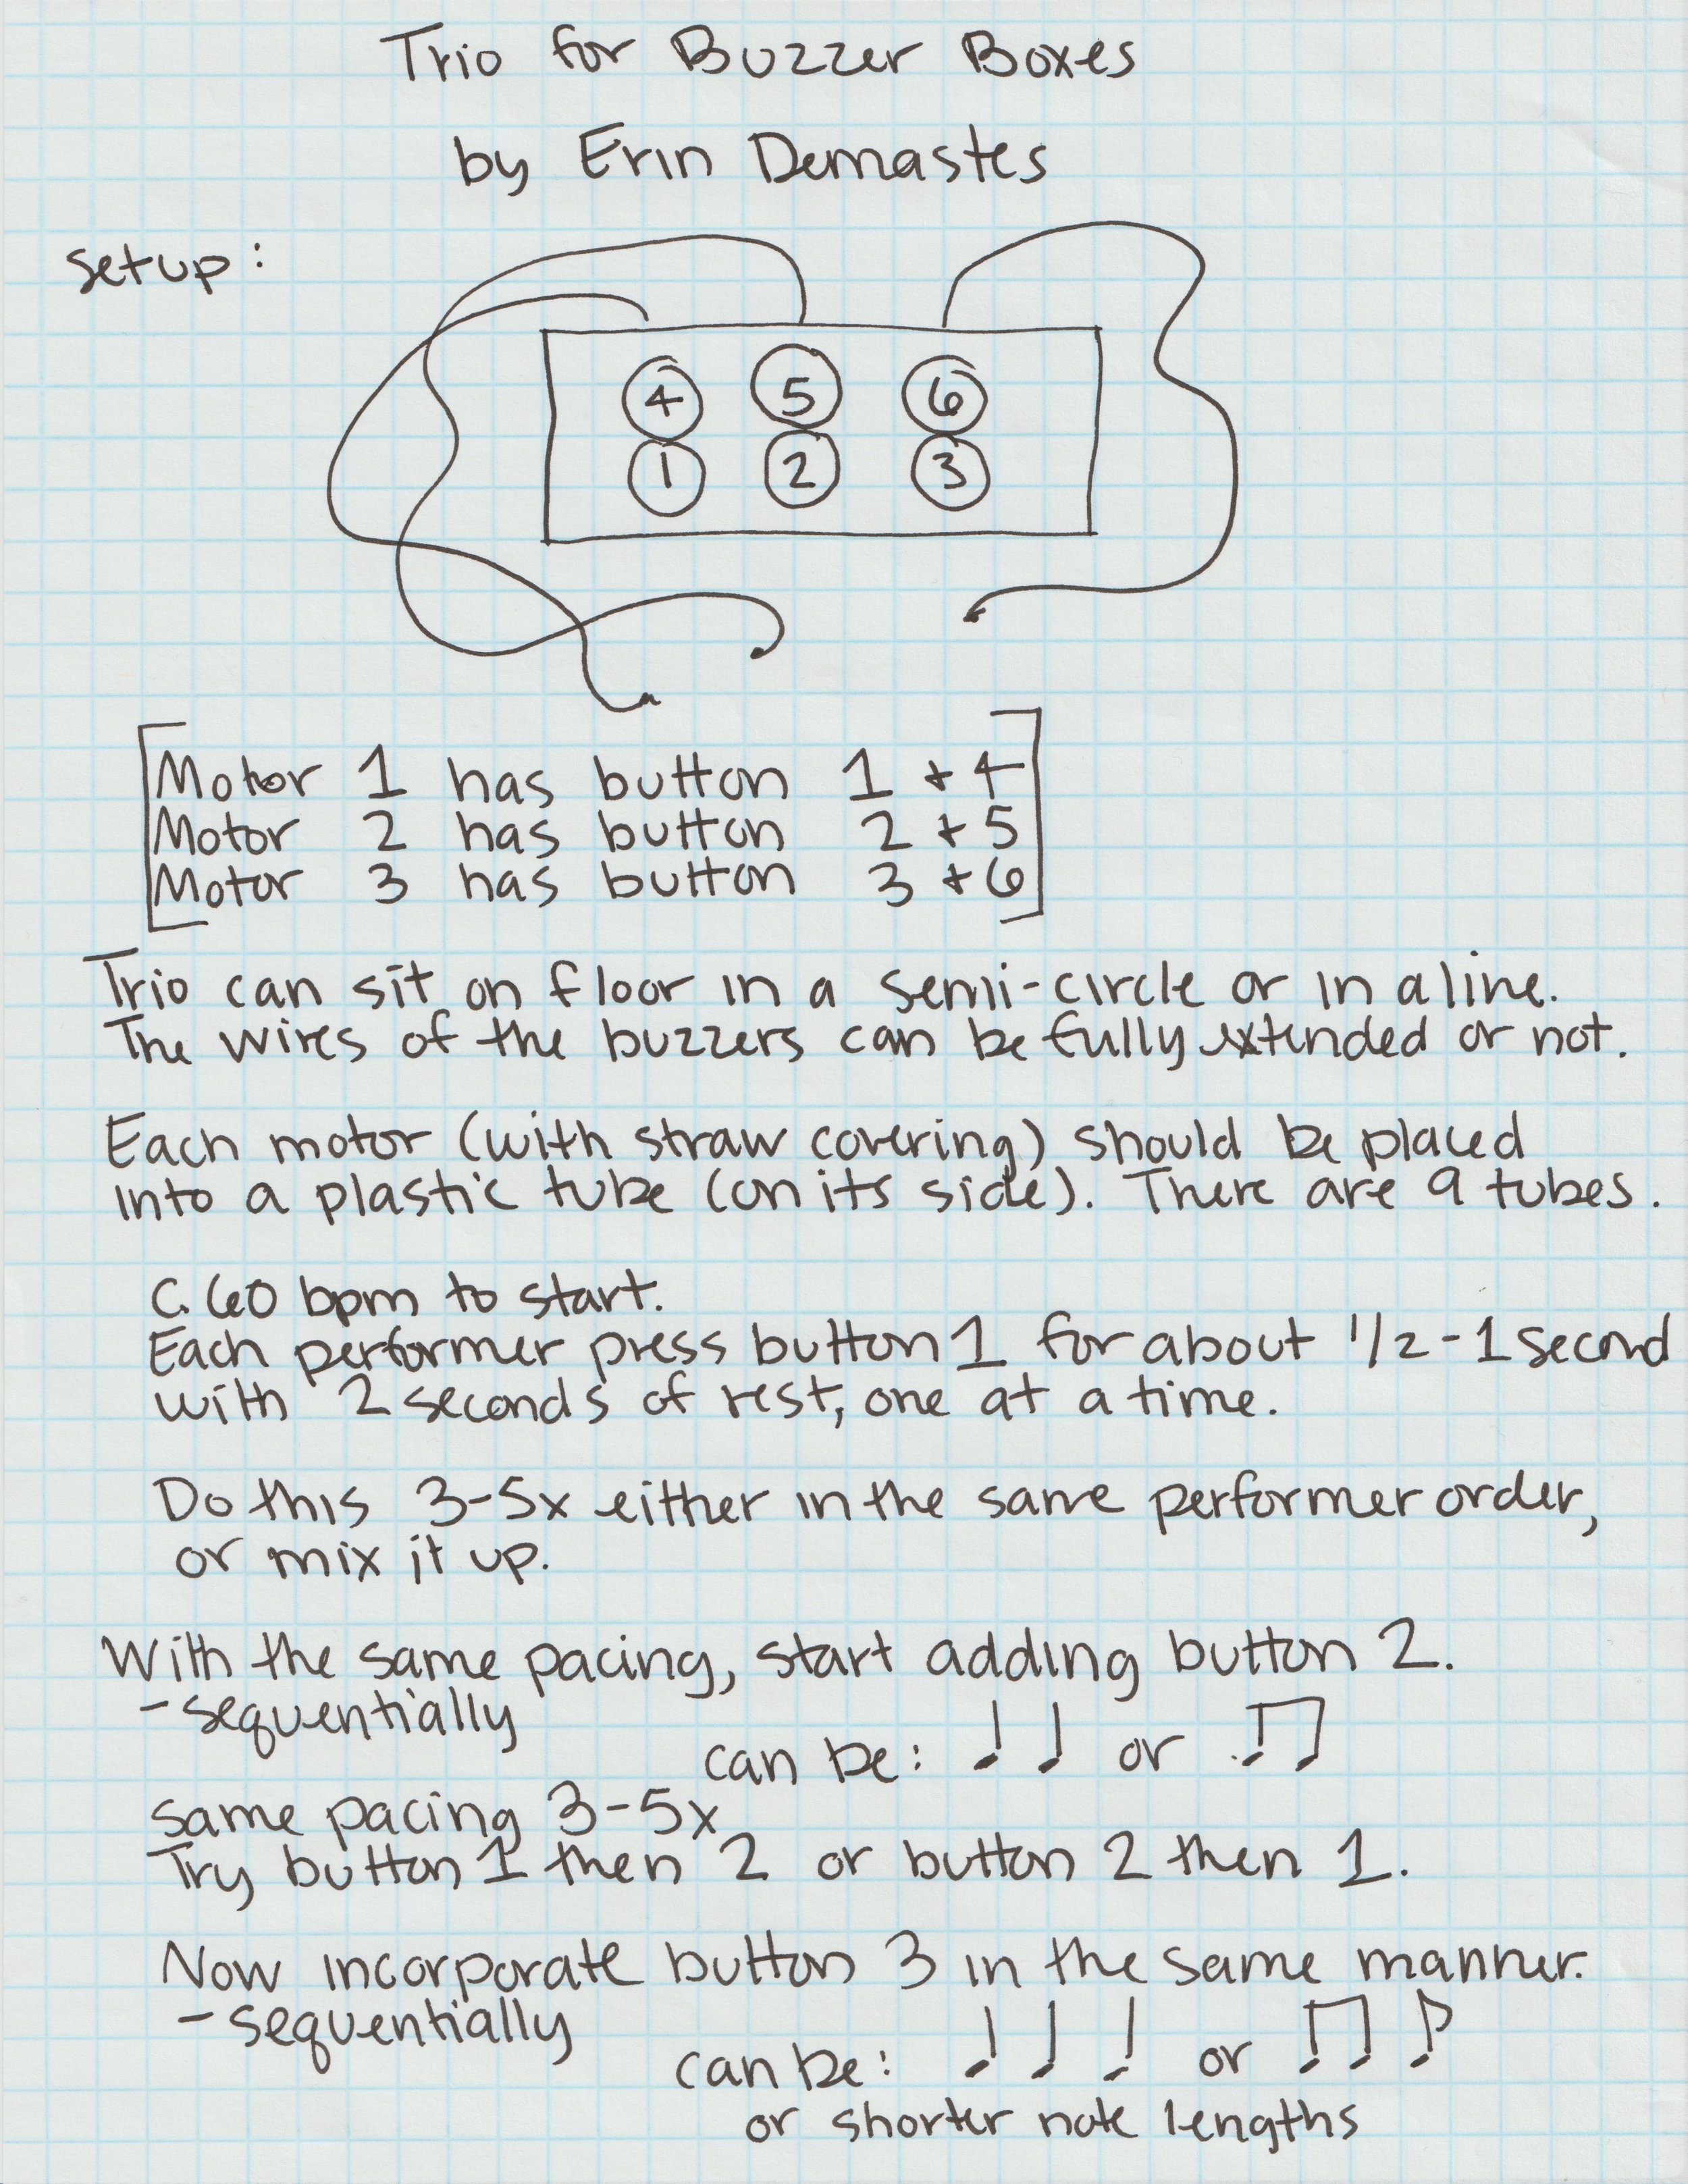 Trio for Buzzer Boxes
by Erin Demastes
setup:
4 5 6
1 2 3
Motor 1 has button 1 + 4
Motor 2 has button 2 + 5
Motor 3 has button 3 + 6
Trio can sit on floor in a semi-circle or in a line.
The wires of the buzzers can be fully extended or not.
Each motor (with straw covering) should be placed
into a plastic tube (on its side). There are 9 tubes.
C. 60 bpm to start.
Each performer press button 1 for about 1/2 - 1 second
with 2 seconds of rest, one at a time.
Do this 3-5x either in the same performer order,
or mix it up.
With the same pacing, start adding button 2.
- sequentially
can be: ♩ ♩ or ♫
same pacing 3-5x
Try button 1 then 2 or button 2 then 1.
Now incorporate button 3 in the same manner.
- sequentially
can be: ♩ ♩ ♩ or ♫ ♪
or shorter note lengths